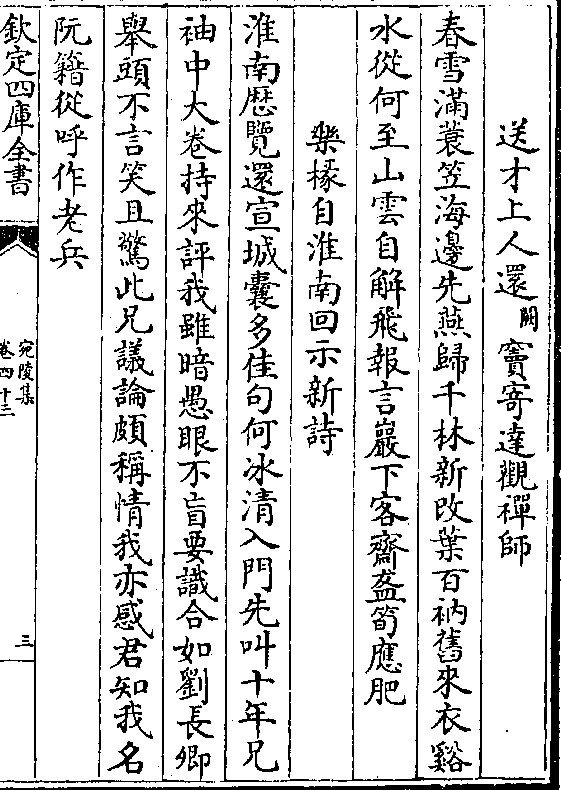 送才上人還闕竇寄達觀禪師
春雪滿蓑笠海邊先燕歸千林新改葉百衲舊來衣谿
水從何至山雲自解飛報言巖下客齋盋筍應肥
樂椽自淮南回示新詩
淮南歴覽還宣城囊多佳句何冰清入門先叫十年兄
袖中大卷持來評我雖暗愚眼不盲要識合如劉長卿
舉頭不言笑且驚此兄議論頗稱情我亦感君知我名
阮籍從呼作老兵
欽定四庫全書
宛陵集
卷四十三
三